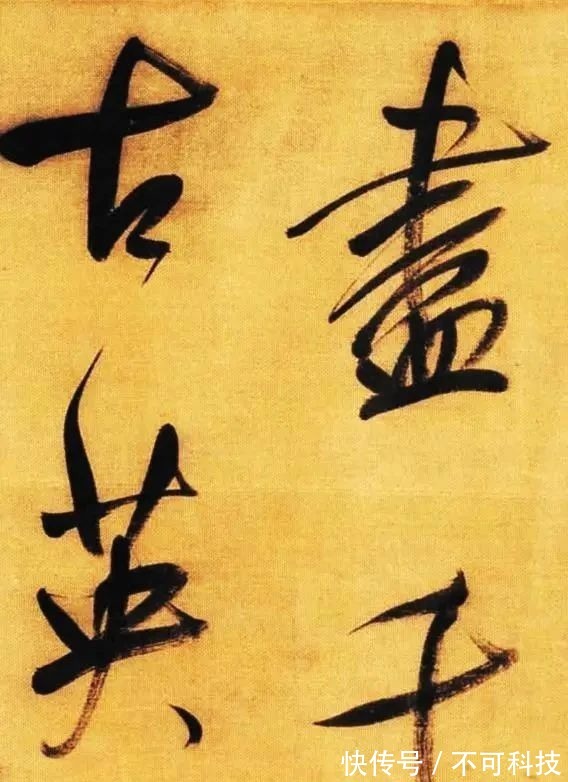 盡千
古英
快传号/不可科技